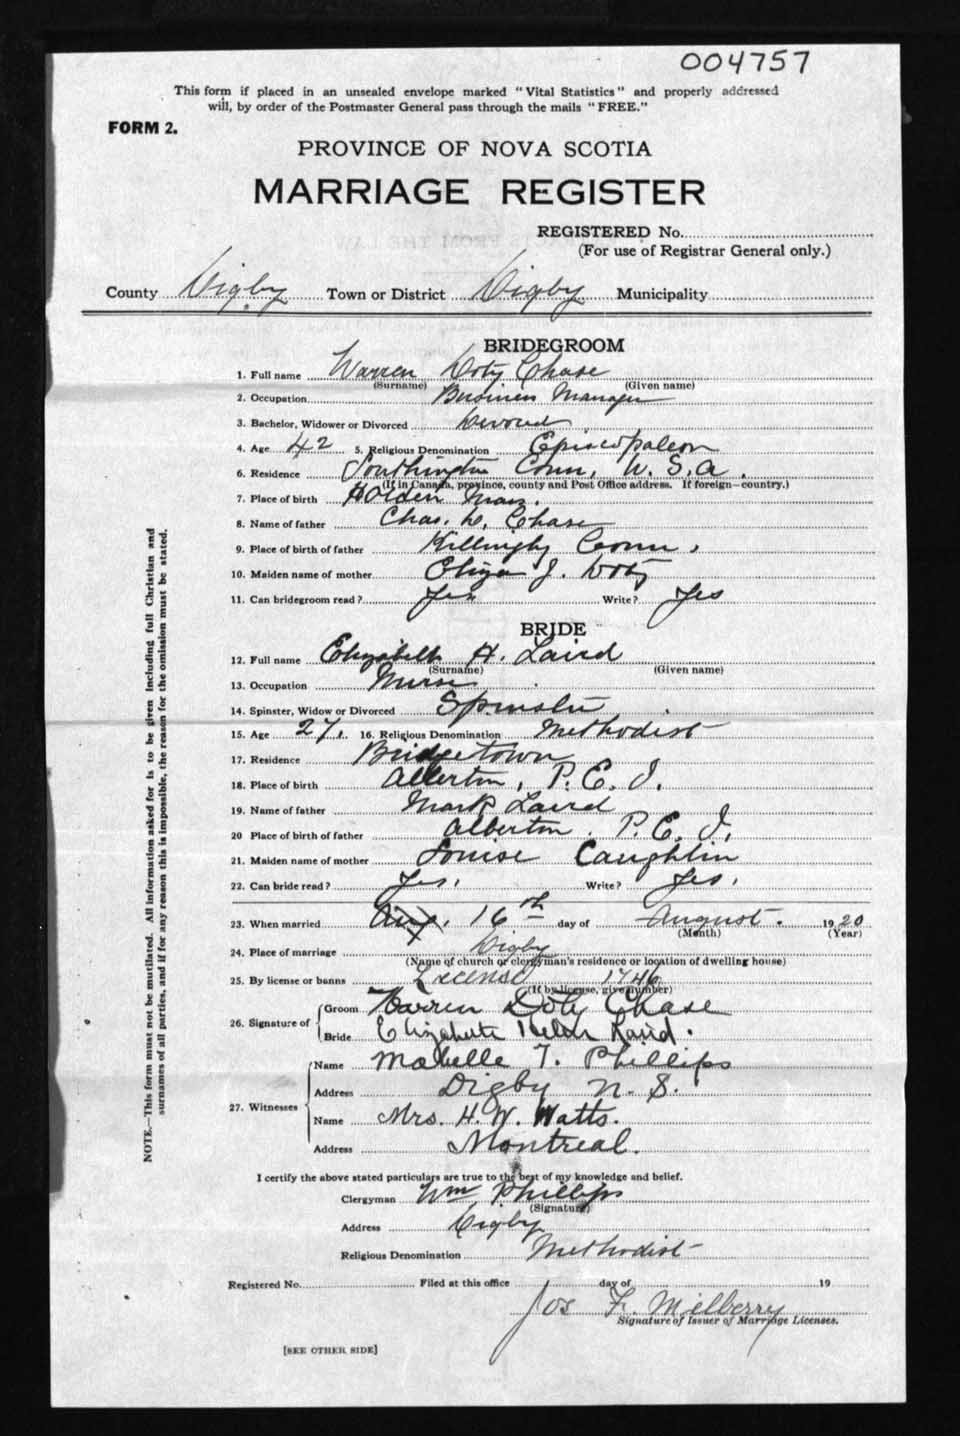 004757
This form if placed in an unsealed envelope marked "Vital Statistics" and properly addressed
will, by order of the Postmaster General pass through the mails "FREE."
FORM 2.
PROVINCE OF NOVA SCOTIA
MARRIAGE REGISTER
REGISTERED No.
(For use of Registrar General only.)
County Digby Town or District Digby Municipality
BRIDEGROOM
1. Full name Warren Doty Chase
(Surname) (Given name)
2. Occupation Business Manager
3. Bachelor, Widower or Divorced
4. Age 42 5. Religious Denomination Episcopalean
6. Residence Southington Conn, U.S.A.
(If in Canada, province, county and Post Office address. If foreign—country.)
7. Place of birth Holden Mass.
8. Name of father Chas. Chase
9. Place of birth of father Conn,
10. Maiden name of mother Eliza J. Doty
11. Can bridegroom read? Yes Write? Yes
BRIDE
12. Full name Elizabeth H. Laird
(Surname) (Given name)
13. Occupation Nurse
14. Spinster, Widow or Divorced Spinster
15. Age 27. 16. Religious Denomination Methodist
17. Residence Bridgetown
18. Place of birth Alberton, P.E.I.
19. Name of father Mark Laird
20 Place of birth of father Alberton. P.E.I.
21. Maiden name of mother Louise Caughlin
22. Can bride read? Yes. Write? Yes.
23. When married Aug. 16th day of August. 1920
(Month) (Year)
24. Place of marriage Digby
(Name of church or clergyman's residence or location of dwelling house)
25. By license or banns License 1746
(If by license, give number)
26. Signature of Groom Warren Doty Chase
Bride Elizabeth Helen Laird.
27. Witnesses Name Mabelle T. Phillips
Address Digby N.S.
Name Mrs. H. W. Watts.
Address Montreal.
I certify the above stated particulars are true to the best of my knowledge and belief.
Clergyman Wm Phillips
(Signature)
Address Digby
Religious Denomination Methodist
Registered No. Filed at this office day of 19
Jos F. Milberry
Signature of Issuer of Marriage Licenses.
[SEE OTHER SIDE]
NOTE.—This form must not be mutilated. All information asked for is to be given including full Christian and
surnames of all parties, and if for any reason this is impossible, the reason for the omission must be stated.